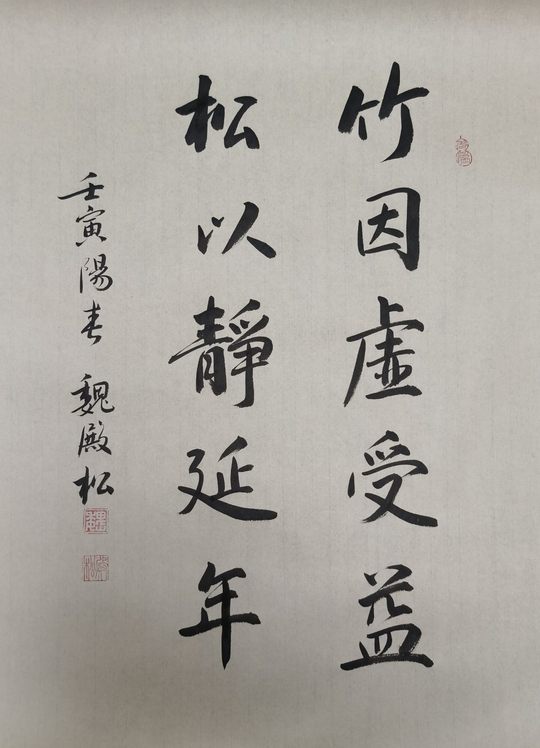 竹因虚受益
松以靜延年
壬寅陽春 魏殿松